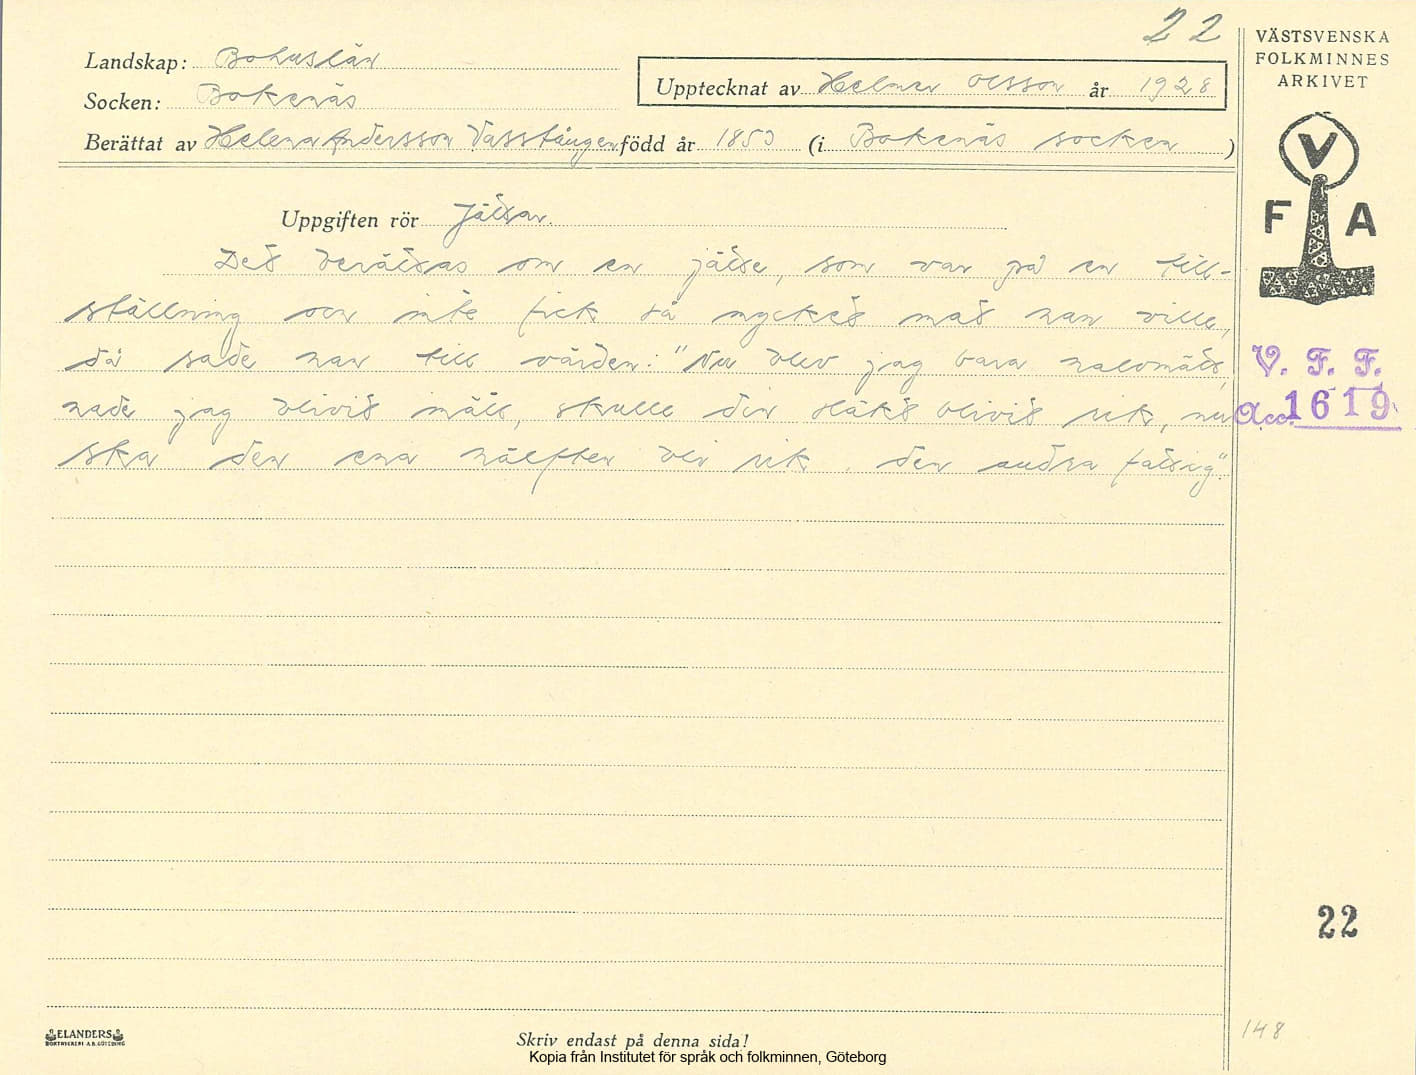 22
VÄSTSVENSKA
FOLKMINNES
ARKIVET
Landskap: Bohuslän
Upptecknat av Helmer Olsson år 1928
Socken: Bokenäs
Berättat av Helena Andersson Vasstången född år 1853 (i Bokenäs socken)
V
F A
Uppgiften rör Jätten.
Det berättas om en jätte, som var på en till-
ställning och inte fick så mycket mat han ville,
då sade han till värden: "Nu blev jag bara halvmätt,
hade jag blivit mätt, skulle din släkt blivit rik, nu
ska den ena hälften bli rik, den andra fattig".
V. F. F.
Acc. 1619
22
148
ELANDERS
BOKTRYCKERI A.B. GÖTEBORG
Skriv endast på denna sida!
Kopia från Institutet för språk och folkminnen, Göteborg